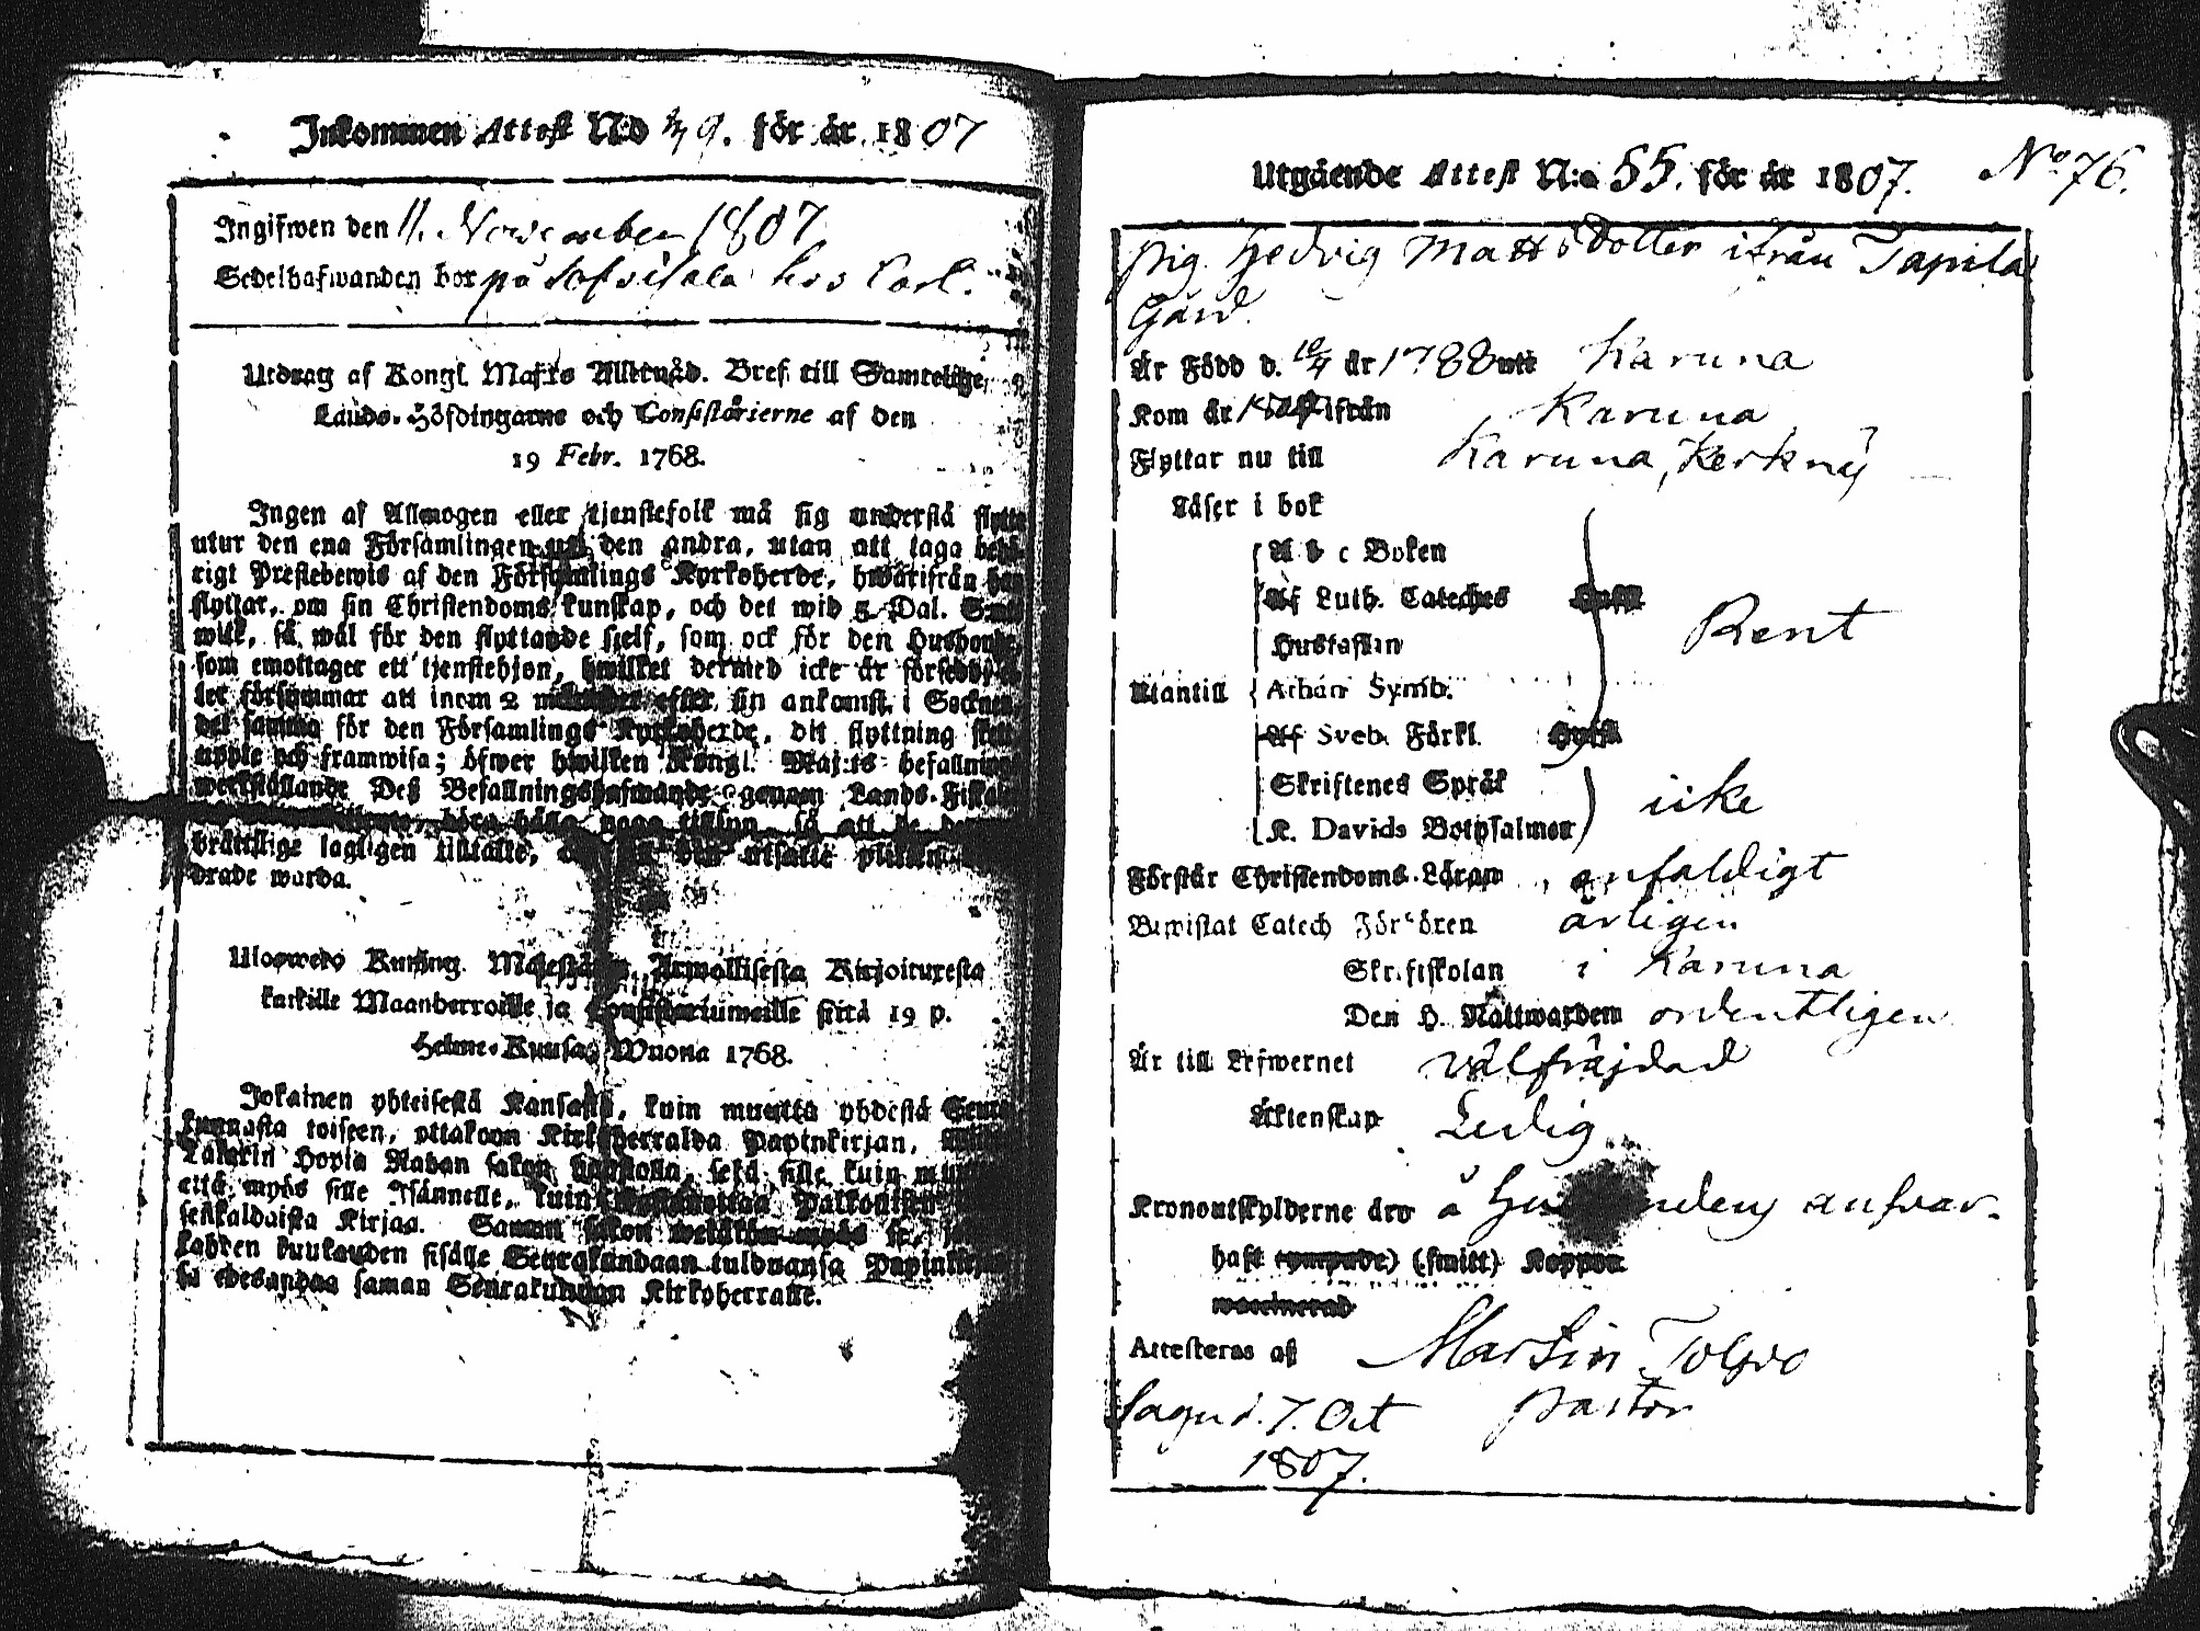 Inkommen Attest N:o 9. för år 1807
Ingifwen den 11. November 1807
Sedelhafwanden bor på hos Carl.
Utdrag af Kongl. Maj:ts Allernåd. Bref till Samtelige
Lands-Höfdingarne och Consistorierne af den
19 Febr. 1768.
Ingen af Allmogen eller tjenstefolk må sig understå flytta
utur den ena Församlingen uti den andra, utan att taga behö-
rigt Prestebewis af den Församlings Kyrkoherde, hwarifrån han
flyttar, om sin Christendoms kunskap, och det wid 5 Dal. S:mt
wite, så wäl för den flyttande sjelf, som ock för den Husbonde
som emottager ett tjenstehjon, hwilket dermed icke är försedt,
ler försummar att inom 2 månader efter sin ankomst i Socknen
det samma för den Församlings Kyrkoherde, dit flyttning
uppte och framwisa; öfwer hwilken Kongl. Maj:ts befallning
werkställande Deß Befallningshafwande genom Lands-Fiskal
böra hålla noga tillsyn, så att
brottslige lagligen tilltalte, utsatte plikten
drade warda.
Ulosweto Kuning. Majestätin Armollisesta Kirjoituxesta
kaikille Maanherroille ja Consistoriumeille siitä 19 p.
Helme-Kuusa Wuona 1768.
Jokainen yhteisestä Kansasta, kuin muutta yhdestä Seura-
kunnasta toiseen, ottakoon Kirkkoherralda Papinkirjan,
Talarin Hopia Rahan sakon haastolla, sekä sille kuin muutta
että myös sille Isännelle, kuin Palkollisen
senkaldaista Kirjaa. Saman sakon wetäköön myös se,
kahden kuukauden sisälle Seurakundaan tulduansa Papinkirjan
sa edesandaa saman Seurakunnan Kirkoherralle.
Utgående Attest N:o 55. för år 1807. No 76.
Pig. Hedvig Mattsdotter ifrån Tapila
Gård.
Är Född d. 10/4 år 1788 uti Karuna
Kom år ifrån Karuna
Flyttar nu till Karuna, Kerkny
Läser i bok
A b c Boken
Af Luth. Cateches
Hustaflan Rent
Utantill Athan Symb.
Af Sveb. Förkl.
Skriftenes Språk icke
K. Davids Botpsalmer
Förstår Christendoms-Läran enfaldigt
Bewistat Catech Förhören årligen
Skriftskolan i Karuna
Den H. Nattwarden ordentligen
Är till Lefwernet välfräjdad
Äktenskap Ledig
Kronoutskylderne dro å ansvar.
haft (ympade) (smitt) Koppor
waccinerad
Attesteras af Martin Tolpo
Sagu d. 7. Oct Pastor
1807.